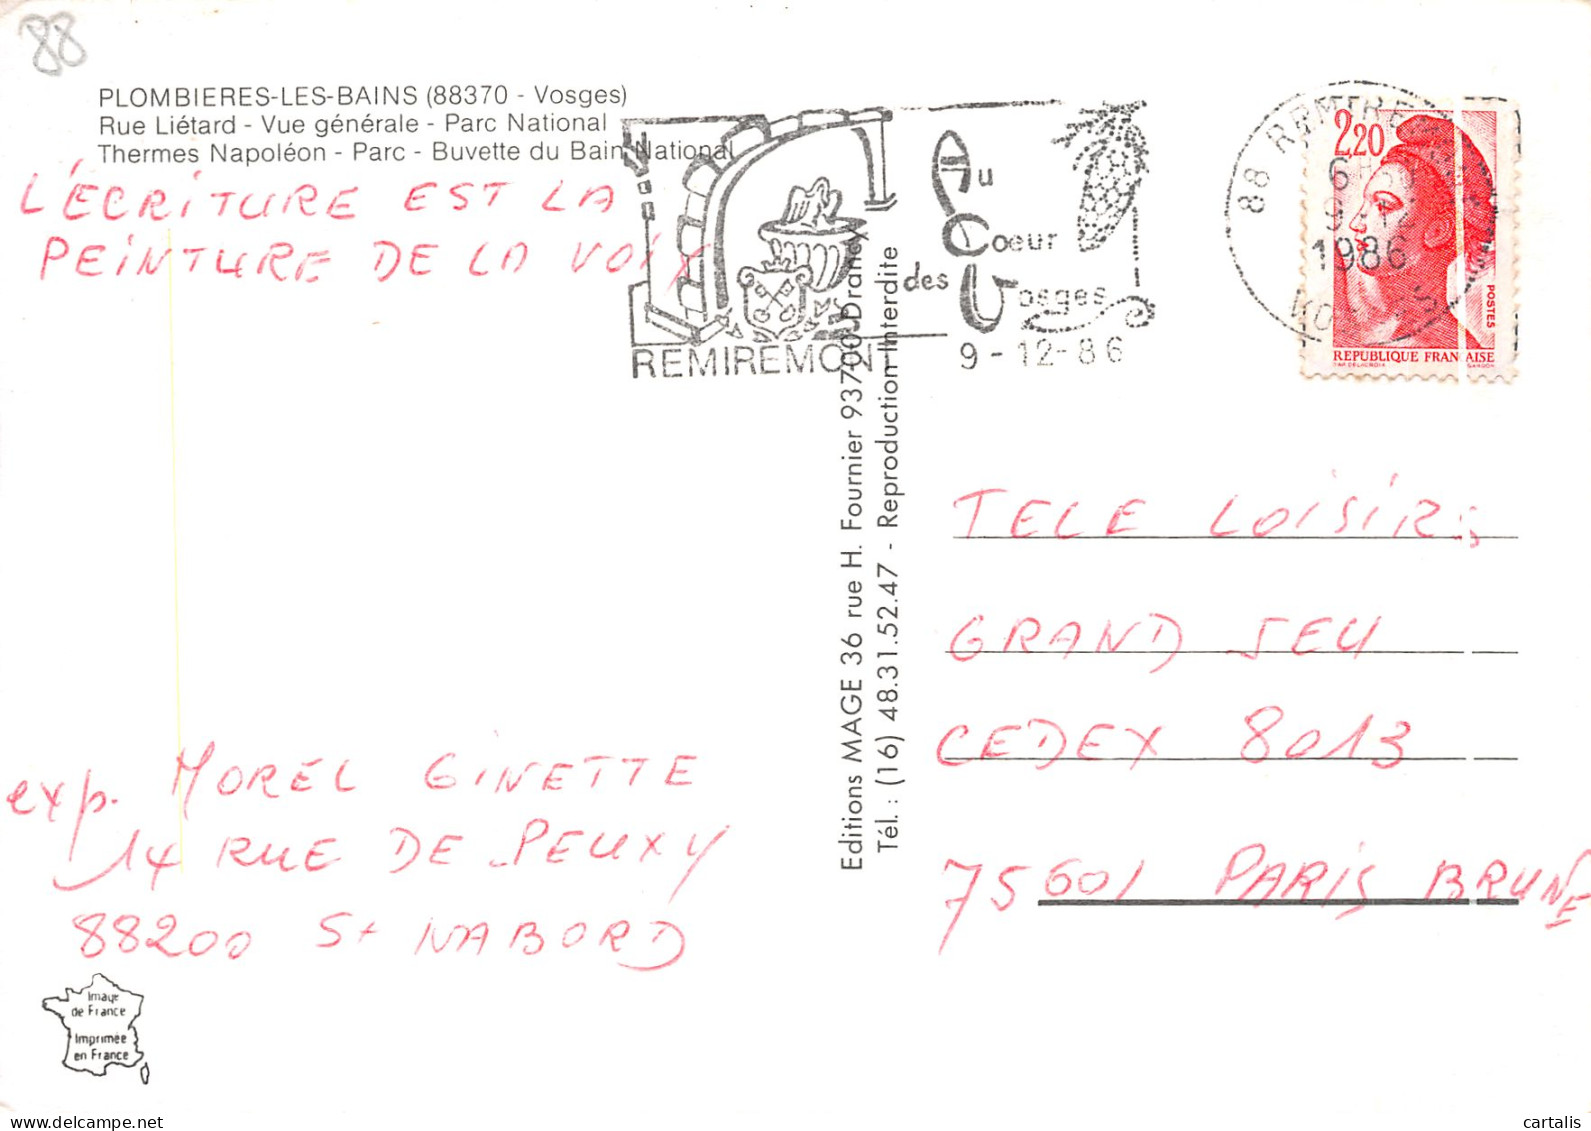 88
PLOMBIERES-LES-BAINS (88370 - Vosges)
Rue Liétard - Vue générale - Parc National
Thermes Napoléon - Parc - Buvette du Bain National
L'ÉCRITURE EST LA
PEINTURE DE LA VOIX
Au
Coeur
des Vosges
REMIREMONT
9-12-86
88 REMIREMONT
9-12
1986
VOSGES
2,20
POSTES
REPUBLIQUE FRANÇAISE
Editions MAGE 36 rue H. Fournier 93700 Drancy
Tél. : (16) 48.31.52.47 - Reproduction Interdite
TELE LOISIRS
GRAND JEU
CEDEX 8013
75601 PARIS BRUNE
exp. MOREL GINETTE
14 RUE DE PEUXY
88200 St NABORD
Image
de France
Imprimée
en France
cartalis